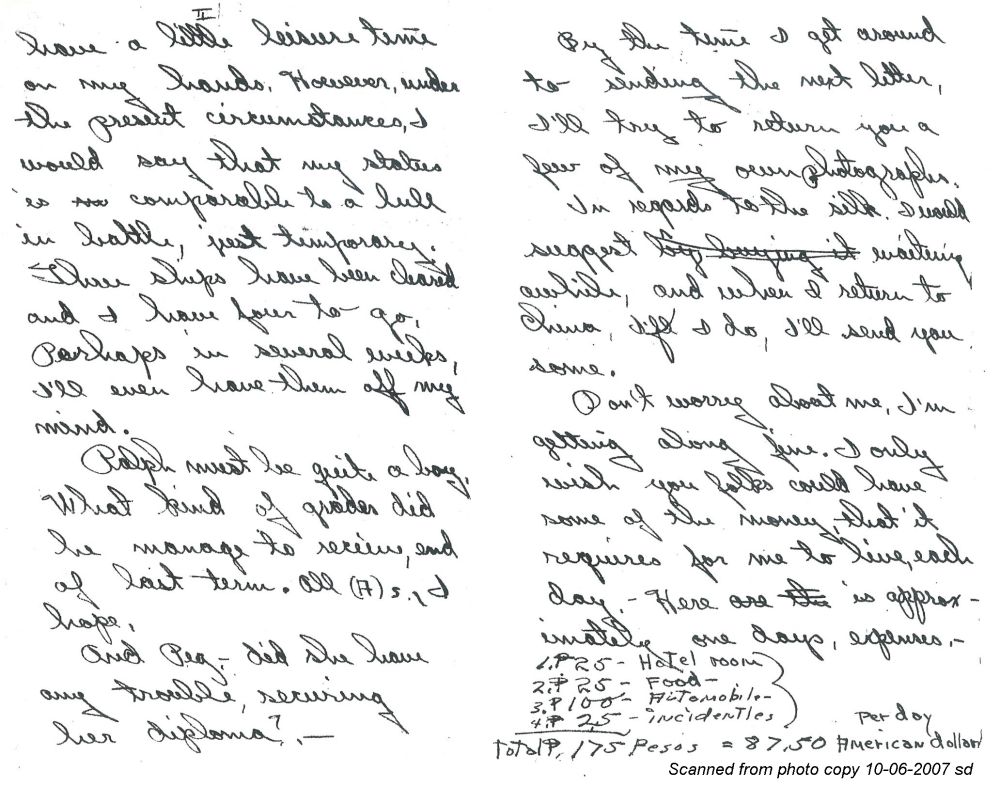 II
have a little leisure time
on my hands. However, under
the present circumstances, I
would say that my status
is comparable to a lull
in battle, just temporary.
Three ships have been cleared
and I have four to go,
Perhaps in several weeks,
I'll even have them off my
mind.
Ralph must be quite a boy,
What kind of grades did
he manage to receive, end
of last term. All (A)s., I
hope,
And Peg,- did she have
any trouble, securing
her diploma?.—
By the time I get around
to sending the next letter,
I'll try to return you a
few of my own photographs.
In regards to the silk. I would
suggest by buying it waiting
awhile, and when I return to
China, if I do, I'll send you
some.
Don't worry about me, I'm
getting along fine. I only
wish you folks could have
some of the money, that it
requires for me to live, each
day.- Here are the is approx-
imately one days, expenses,-
1. ₱ 25 - Hotel room
2. ₱ 25 - Food-
3. ₱ 100 - Automobile-
4. ₱ 25 - incidentles
per day
Total ₱. 175 Pesos = 87.50 American dollars
Scanned from photo copy 10-06-2007 sd